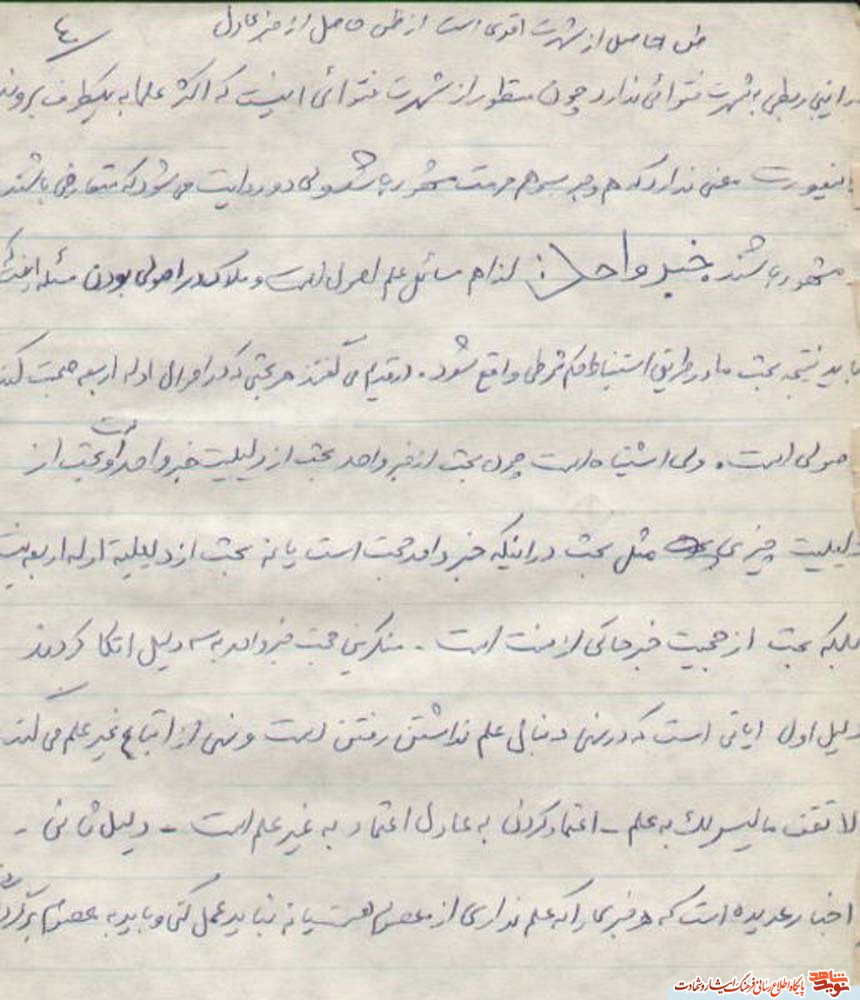 ظن حاصل از شهرت اقوی است از ظن حاصل از خبر عادل
ربطی به شهرت فتوائی ندارد چون منظور از شهرت فتوائی اینست که اکثر علما به یکطرف بروند
معنی ندارد که هم و هم حرمت مشهور باشد ولی دو روایت می شود که متعارض باشند
مشهور باشند. خبر واحد: از اهم مسائل علم اصول است و ملاک در اصولی بودن مسئله اینست
باید نتیجه بحث ما در طریق استنباط حکم شرعی واقع شود. در قدیم می گفتند هر بحثی که در احوال ادله اربعه صحبت کند
اصولی است. ولی اشتباه است چون بحث از خبر واحد بحث از دلیلیت خبر واحد است و بحث از
دلیلیت چیزی مثل بحث در اینکه خبر واحد حجت است یا نه بحث از دلیلیة ادله اربعه نیست
بلکه بحث از حجیت خبر حاکی از سنت است. منکرین حجت خبر واحد به سه دلیل اتکا کردند
دلیل اول ایاتی است که در نهی دنبال علم نداشتن رفتن است و نهی از اتباع غیر علم می کند
لا تقف ما لیس لک به علم - اعتماد کردن به عادل اعتماد به غیر علم است - دلیل ثانی -
اخبار عدیده است که هر خبری را که علم نداری از معصوم هست یا نه نباید عمل کنی و باید به معصوم برگردد
نوید شاهد
پایگاه اطلاع رسانی فرهنگ ایثار و شهادت